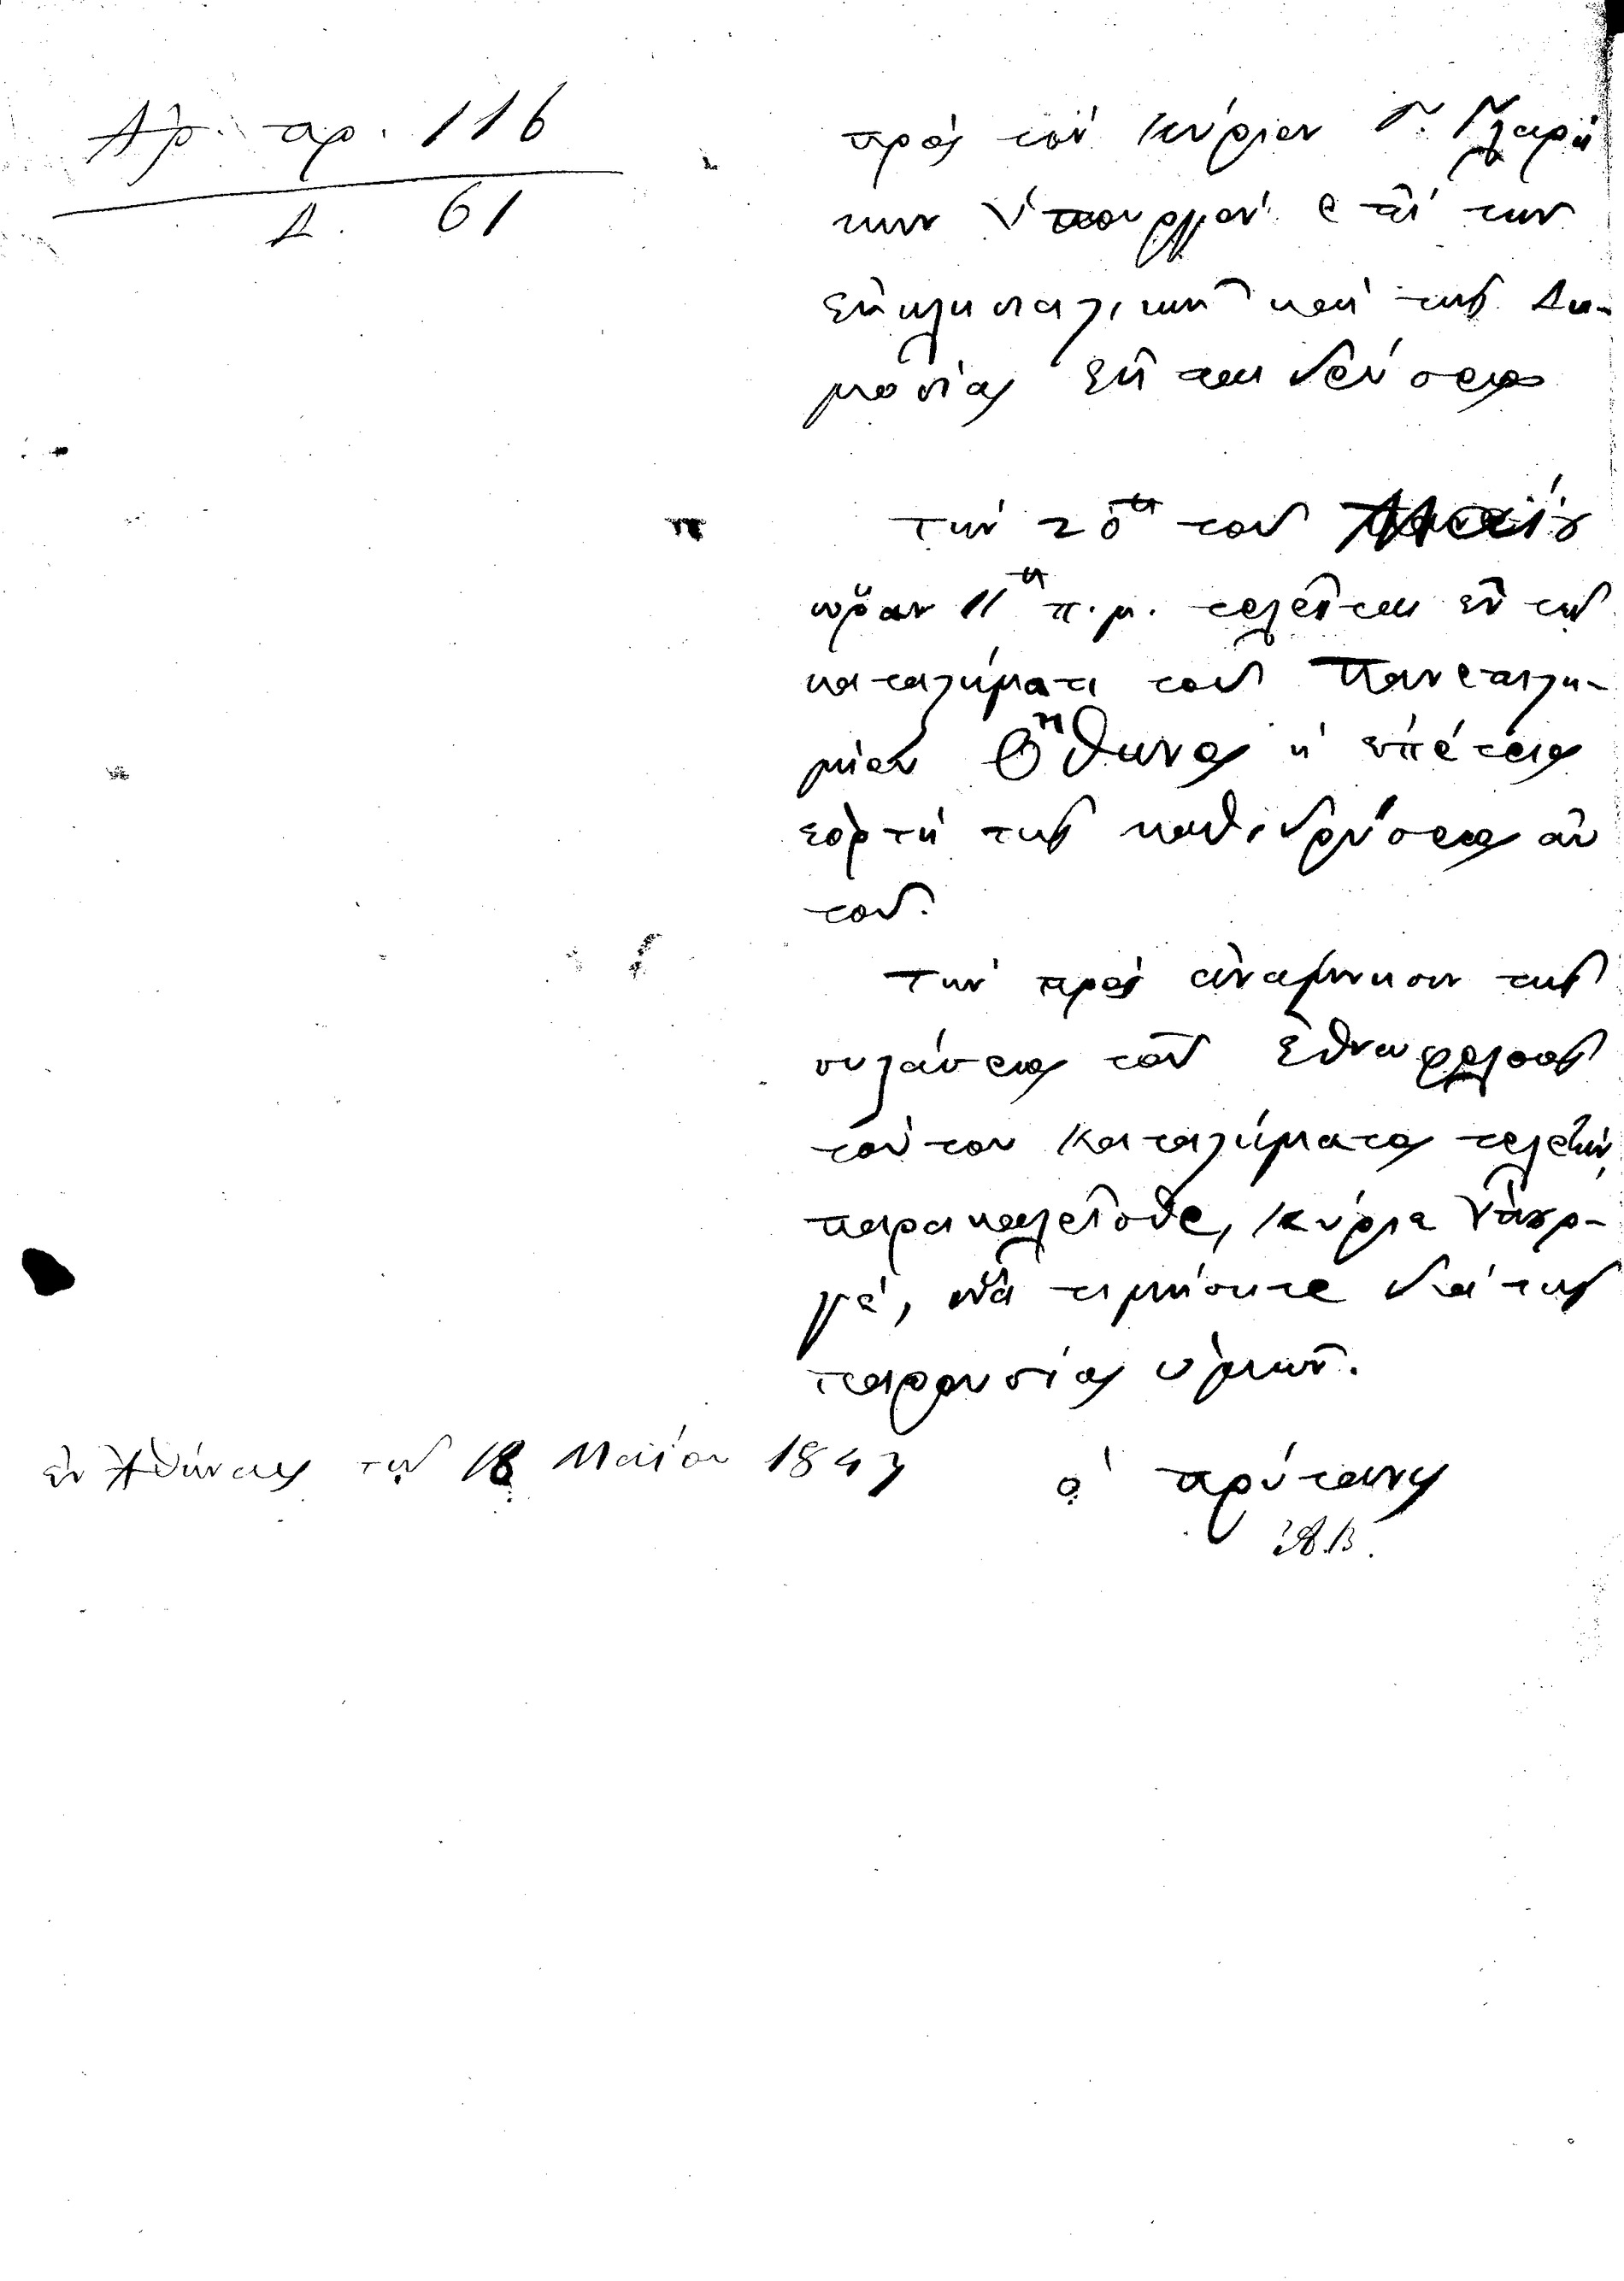 Ἀρ. πρ. 116
Δ. 61
πρὸς τὸν κύριον Γ. Γλαρά
κην Ὑπουργόν ἐπὶ των
Ἐκκλησιαστικῶν καὶ τῆς Δη-
μοσίας Ἐκπαιδεύσεως
Τὴν 20ην τοῦ Μαΐου
ὥραν 11ην π.μ. τελεῖται ἐν τῷ
καταστήματι τοῦ Πανεπιστη-
μίου Ὄθωνος ἡ ἐπέτειος
ἑορτὴ τῆς καθιδρύσεως αὐ
τοῦ.
Τὴν πρὸς ἀνάμνησιν τῆς
συστάσεως τοῦ Ἐθνωφελοῦς
τούτου Καταστήματος τελετήν,
παρακαλεῖσθε, Κύριε Ὑπουρ-
γέ, νὰ τιμήσητε διὰ τῆς
παρουσίας ὑμῶν.
ἐν Ἀθήναις τῇ 18 Μαΐου 1847
ὁ πρύτανις
Α.Β.